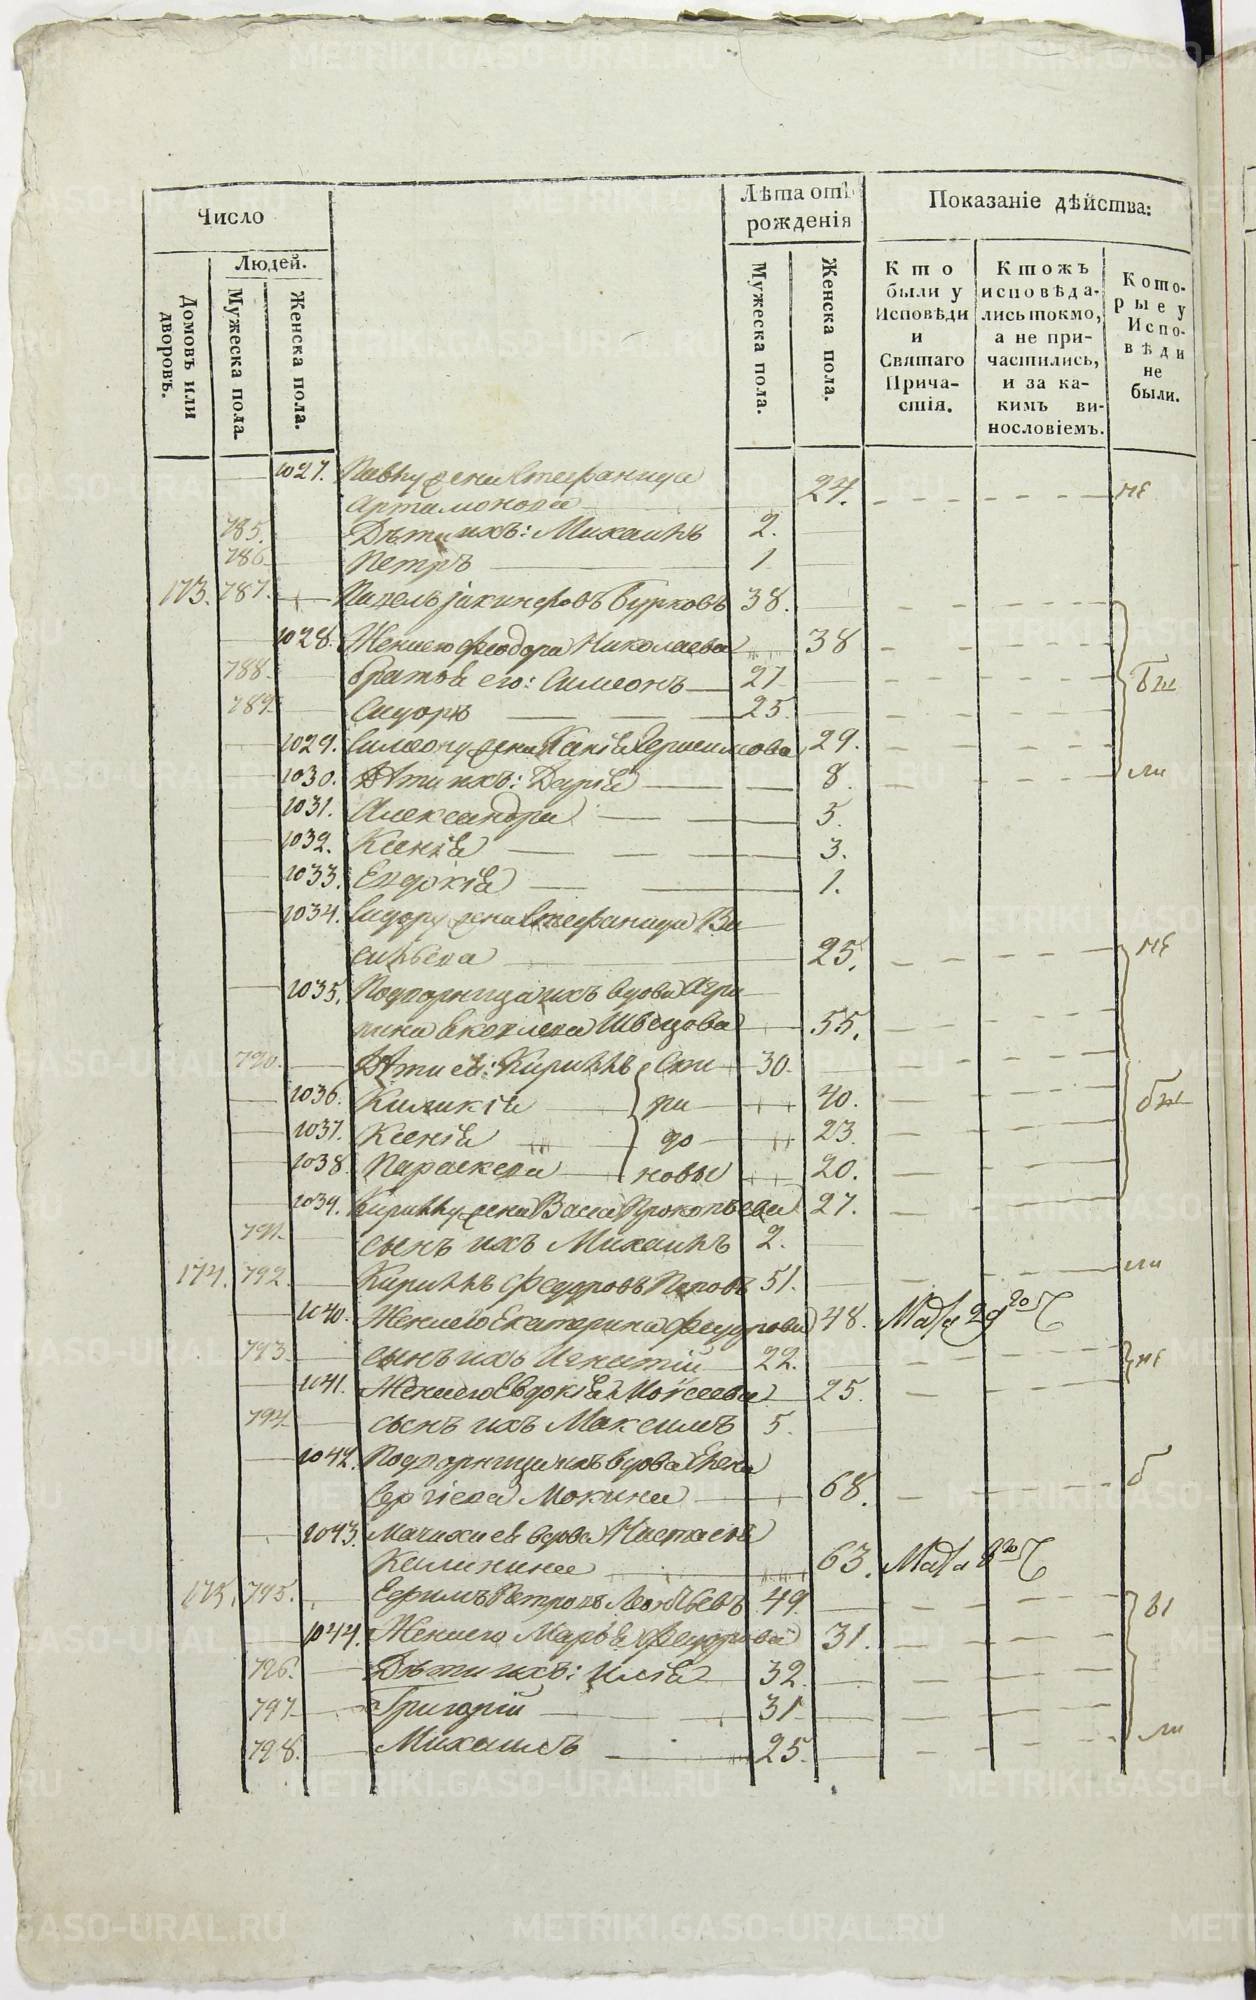 Число
Людей.
Домовъ или дворовъ.
Мужеска пола.
Женска пола.
Лѣта отъ рожденія
Мужеска пола.
Женска пола.
Показаніе дѣйства:
Кто были у Исповѣди и Святаго Причастія.
Ктожъ исповѣдались токмо, а не причастились, и за какимъ винословіемъ.
Которые у Исповѣди не были.
1027. Павлу жена Стефанида
Артамонова 24. не
785. Дѣти ихъ: Михаилъ 2.
786. Петръ 1
173. 787. Бурковъ 38.
1028. Жена его Феодора Николаева 38
788. братья его: Симеонъ 27 бы
789. Сидоръ 25.
1029. Симеону жена Герасимова 29.
1030. Дѣти ихъ: Дарія 8. ли
1031. Александра 5.
1032. Ксенія 3.
1033. Евдокія 1.
1034. Сидору жена Стефанида Ва
сильева 25. не
1035. Подворница ихъ вдова Агри
пина Яковлева Швецова 55.
790. Дѣти ея: Кириллъ Спи 30.
1036. Киликія ри 40. бы
1037. Ксенія до 23.
1038. Параскева новы 20.
1039. Кириллу жена Васса Прокопьева 27.
791. сынъ ихъ Михаилъ 2.
174. 792. Кириллъ Федоровъ Поповъ 51. ли
1040. Жена его Екатерина Федорова 48. Маія 29го Ч
793. сынъ ихъ Игнатій 22. не
1041. Жена его Евдокія Моѵсеева 25.
794. сынъ ихъ Максимъ 5.
1042. Подворница ихъ вдова Елена
Сергіева Мокина 68. б
1043. Мачиха ея вдова Настасья
Калинина 63. Маія 8го Ч
175. 795. Ефимъ Петровъ Леонтьевъ 49. бы
1044. Жена его Марья Федорова 31.
796. Дѣти ихъ: Илія 32.
797. Григорій 31
798. Михаилъ 25. ли
METRIKI.GASO-URAL.RU